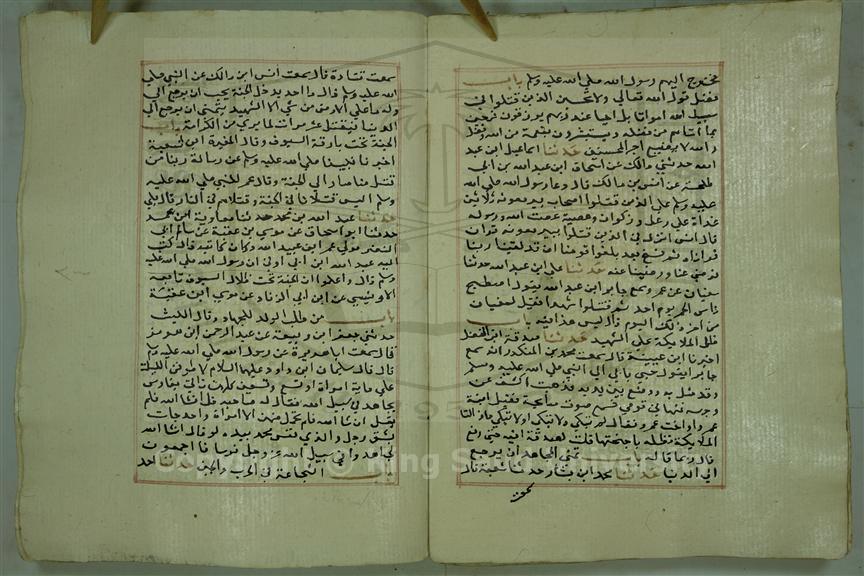 فخرج اليهم رسول الله صلي الله عليه وسلم باب
فضل قول الله تعالي ولا تحسبن الذين قتلوا في
سبيل الله امواتا بل احيا عند ربهم يرزقون فرحين
بما اتاهم من فضله ويستبشرون بنعمة من الله وفضل
وان الله لا يضيع اجر المحسنين حدثنا اسماعيل ابن عبد
الله حدثني مالك عن اسحاق ابن عبد الله بن ابي
طلحة عن انس بن مالك قال دعا رسول الله صلي الله
عليه وسلم علي الذين قتلوا اصحاب بير معونة ثلاثين
غداة علي رعل وذكوان وعصية عصت الله ورسوله
قال انس انزل في الذين قتلوا ببير معونه قران
قراناه ثم نسخ بعد بلغوا قومنا ان قد لقينا ربنا
فرضي عنا ورضينا عنه حدثنا علي ابن عبد الله حدثنا
سفيان عن عمرو سمع جابر ابن عبد الله يقول اصطبح
ناس الخمر يوم احد ثم قتلوا شهدا فقيل لسفيان
من اخر ذلك اليوم قال ليس هذا فيه باب
ظل الملايكة علي الشهيد حدثنا صدقة ابن الفضل
اخبرنا ابن عيينة قال سمعت محمد بن المنكدر انه سمع
جابرا يقول جيئ بابي الي النبي صلي الله عليه وسلم
وقد مثل به ووضع بين يديه فذهبت اكشف عن
وجهه فنهاني قومي فسمع صوت صايحة فقيل ابنة
عمرو او اخت عمرو فقال لم تبكي او لا تبكي ما زالت
الملايكة تظله باجنحتها قلت لصدقة افيه حتي رفع
قال ربما قاله باب تمني المجاهد ان يرجع
الي الدنيا حدثنا محمد ابن بشار حدثنا شعبة قال
سمعت
سمعت قتادة قال سمعت انس ابن مالك عن النبي صلي
الله عليه وسلم قال ما احد يدخل الجنة يحب ان يرجع الي
وله ما علي الارض من شي الا الشهيد يتمني ان يرجع الي
الدنيا فيقتل عشر مرات لما يري من الكرامة باب
الجنة تحت بارقة السيوف وقال المغيرة ابن شعبة
اخبرنا نبينا صلي الله عليه وسلم عن رسالة ربنا من
قتل منا صار الي الجنة وقال عمر للنبي صلي الله عليه
وسلم اليس قتلانا في الجنة وقتلاهم في النار قال بلي
حدثنا عبد الله بن محمد حدثنا معاوية ابن عمرو
حدثنا ابو اسحاق عن موسي بن عقبة عن سالم ابي
النضر مولي عمر ابن عبيد الله وكان كاتبه قال كتب
اليه عبد الله ابن ابي اوفي ان رسول الله صلي الله عليه
وسلم قال واعلموا ان الجنة تحت ظلال السيوف تابعه
الاويسي عن ابن ابي الزناد عن موسي ابن عقبة
باب من طلب الولد للجهاد وقال الليث
حدثني جعفر ابن ربيعة عن عبد الرحمن ابن هرمز
قال سمعت ابا هريرة عن رسول الله صلي الله عليه وسلم
قال قال سليمان ابن داود عليهما السلام لاطوفن الليلة
علي ماية امراة او تسع وتسعين كلهن تاتي بفارس
يجاهد في سبيل الله فقال له صاحبه قل ان شا الله فلم
يقل ان شا الله فلم تحمل منهن الا امراة واحدة جات
بشق رجل والذي نفس محمد بيده لو قال ان شا الله
لجاهدوا في سبيل الله عز وجل فرسانا اجمعون
باب الشجاعة في الحرب والجبن حدثنا احمد